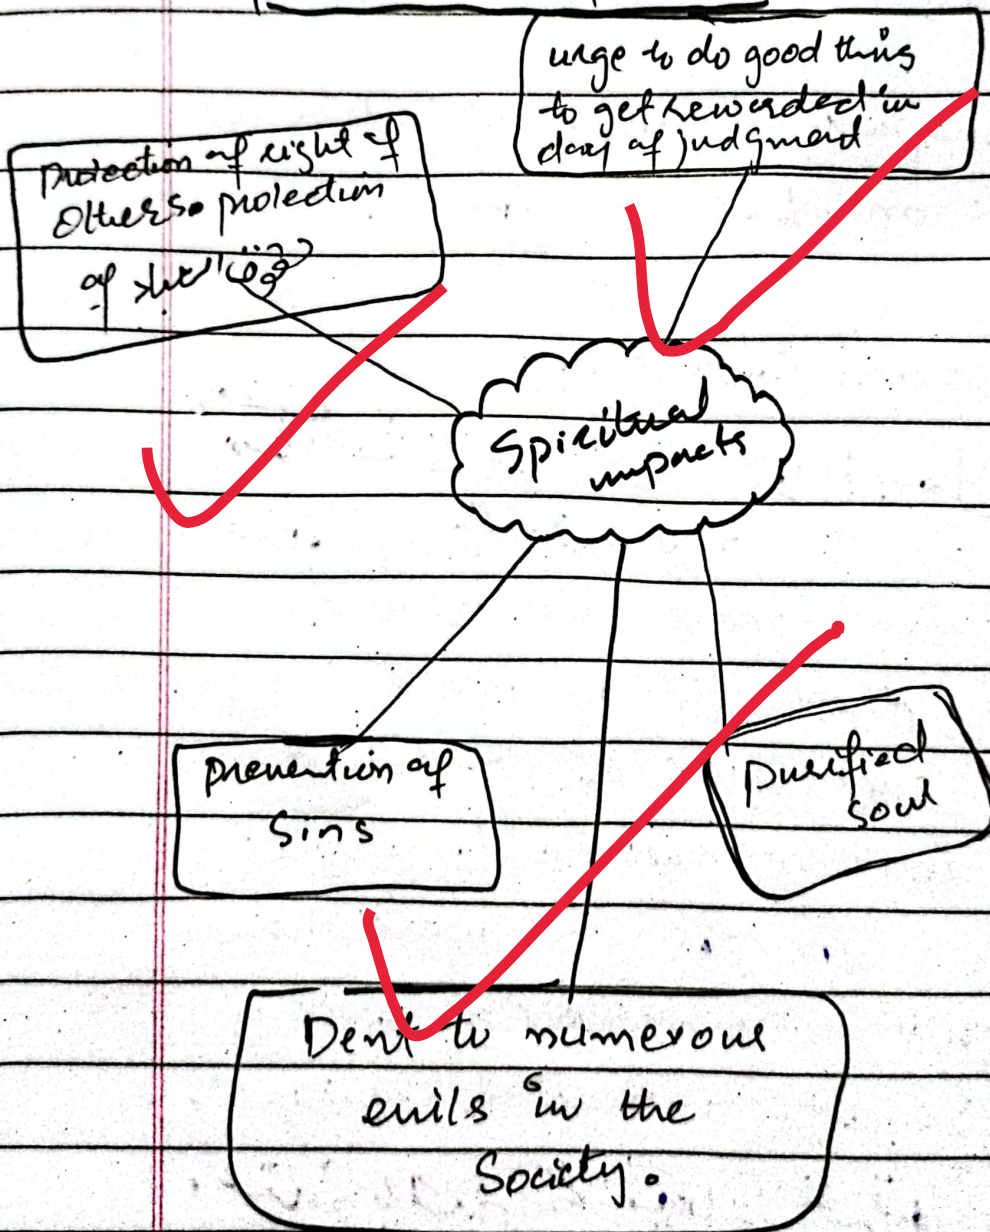 urge to do good thins
to get rewarded in
day of judgment
protection of right of
others. protection
of
Spiritual
impacts
prevention of
Sins
purified
soul
Dent to numerous
evils in the
Society.